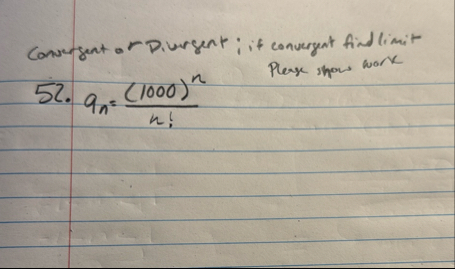 Convergent or Divergent; if convergent find limit
Please show work
52. a_n = (1000)^n / n!